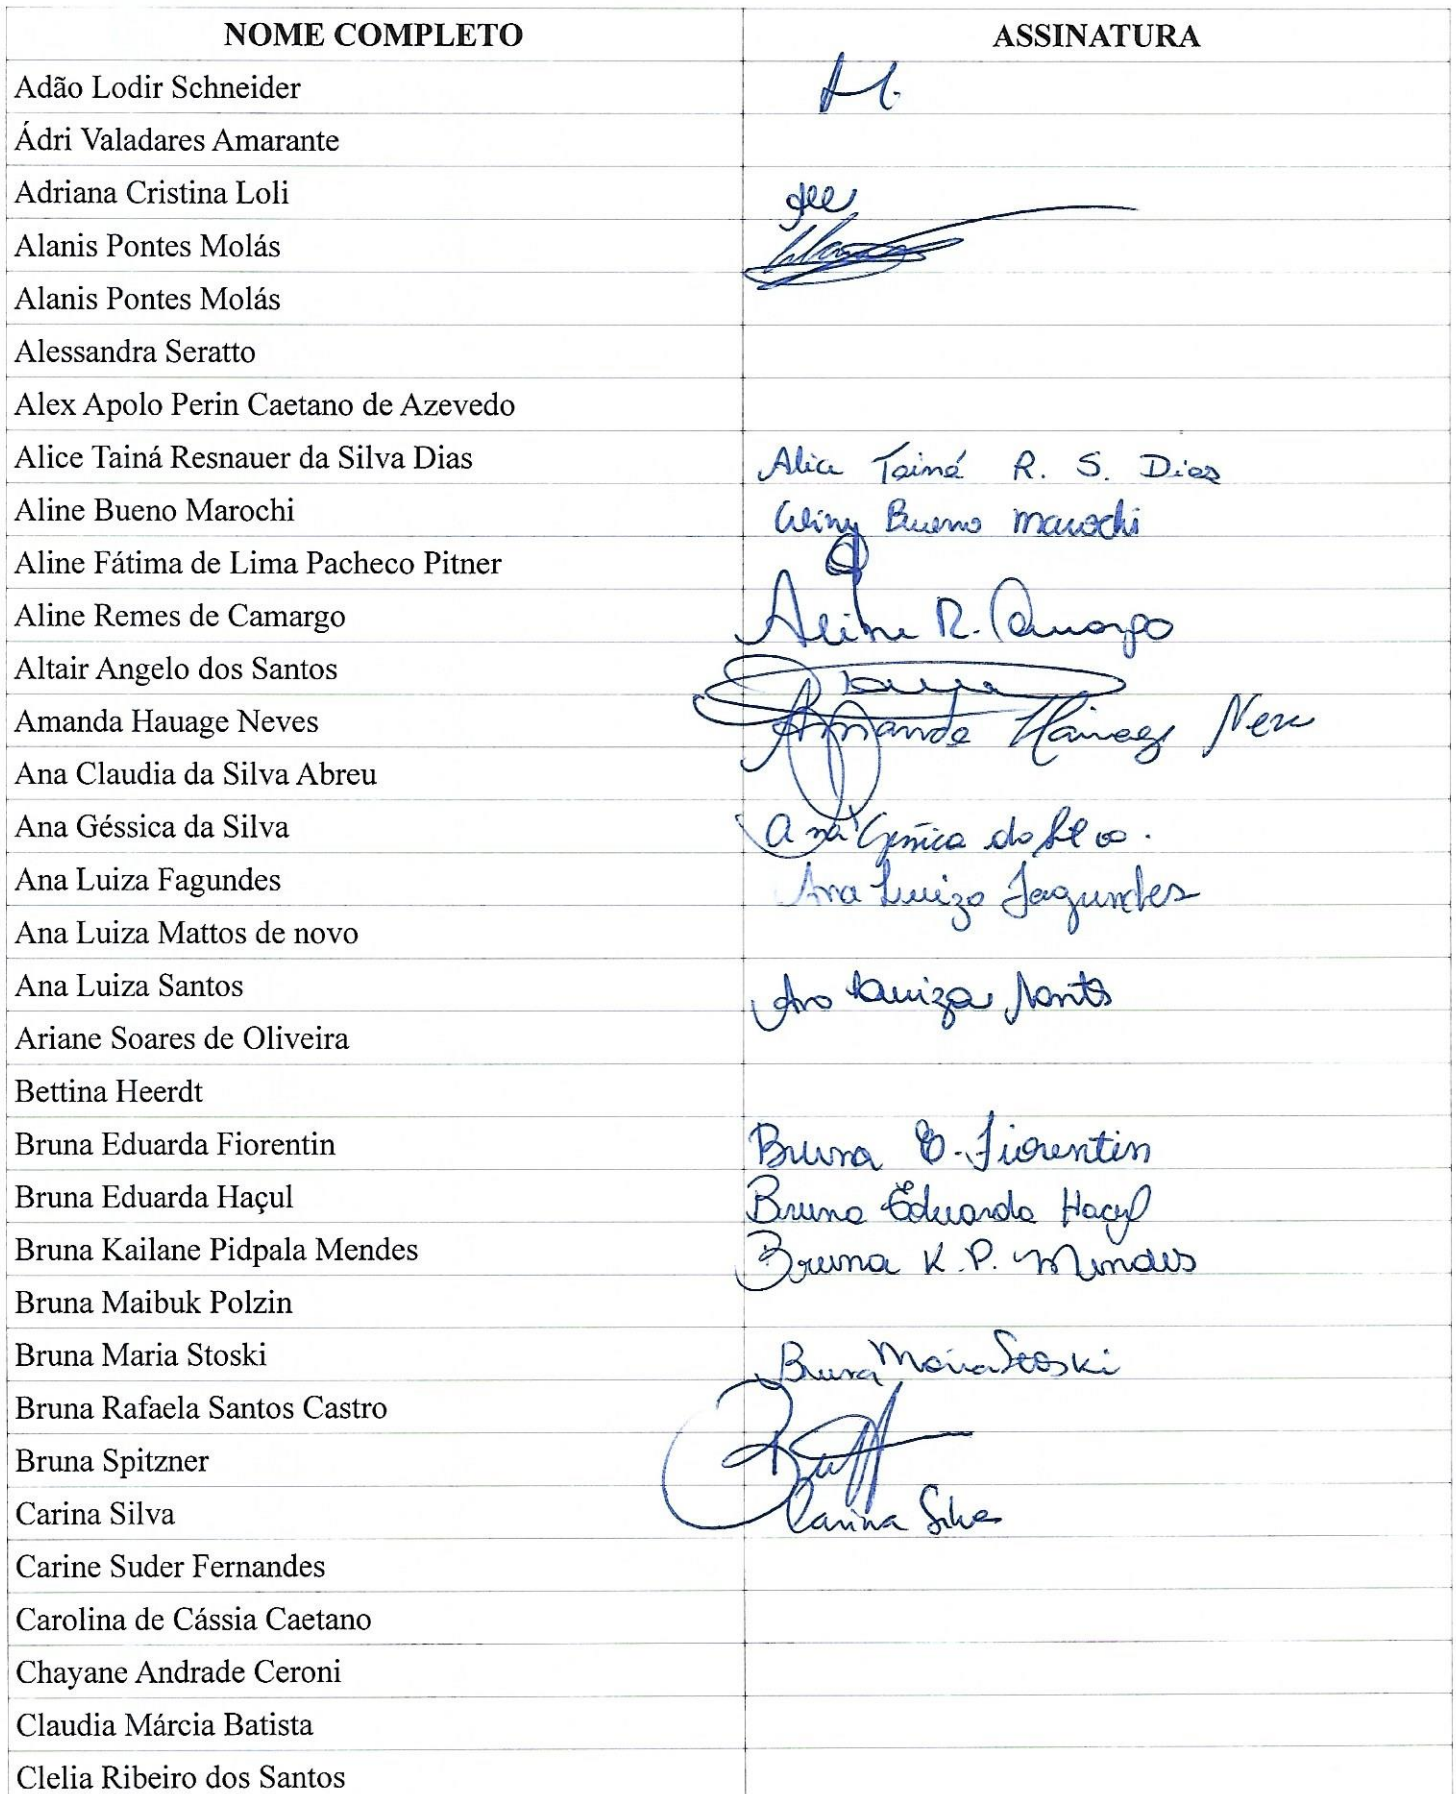 NOME COMPLETO ASSINATURA
Adão Lodir Schneider
Ádri Valadares Amarante
Adriana Cristina Loli
Alanis Pontes Molás
Alanis Pontes Molás
Alessandra Seratto
Alex Apolo Perin Caetano de Azevedo
Alice Tainá Resnauer da Silva Dias Alice Tainá R. S. Dias
Aline Bueno Marochi Aline Bueno Marochi
Aline Fátima de Lima Pacheco Pitner
Aline Remes de Camargo Aline R. Camargo
Altair Angelo dos Santos
Amanda Hauage Neves Amanda
Ana Claudia da Silva Abreu
Ana Géssica da Silva Ana Géssica da Silva.
Ana Luiza Fagundes Ana Luiza Fagundes
Ana Luiza Mattos de novo
Ana Luiza Santos Ana Luiza Santos
Ariane Soares de Oliveira
Bettina Heerdt
Bruna Eduarda Fiorentin Bruna E. Fiorentin
Bruna Eduarda Haçul Bruna Eduarda Haçul
Bruna Kailane Pidpala Mendes Bruna K. P. Mendes
Bruna Maibuk Polzin
Bruna Maria Stoski Bruna Maria Stoski
Bruna Rafaela Santos Castro
Bruna Spitzner
Carina Silva Carina Silva
Carine Suder Fernandes
Carolina de Cássia Caetano
Chayane Andrade Ceroni
Claudia Márcia Batista
Clelia Ribeiro dos Santos